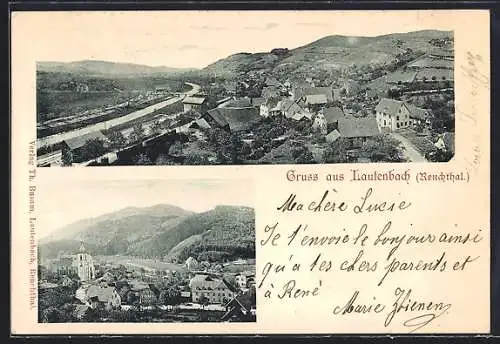 Gruss aus Lautenbach (Renchthal.)
Ma chère Lucie
Je t'envoie le bonjour ainsi
qu'à tes chers parents et
à René
Marie
Verlag Th. Lautenbach, Renchthal.